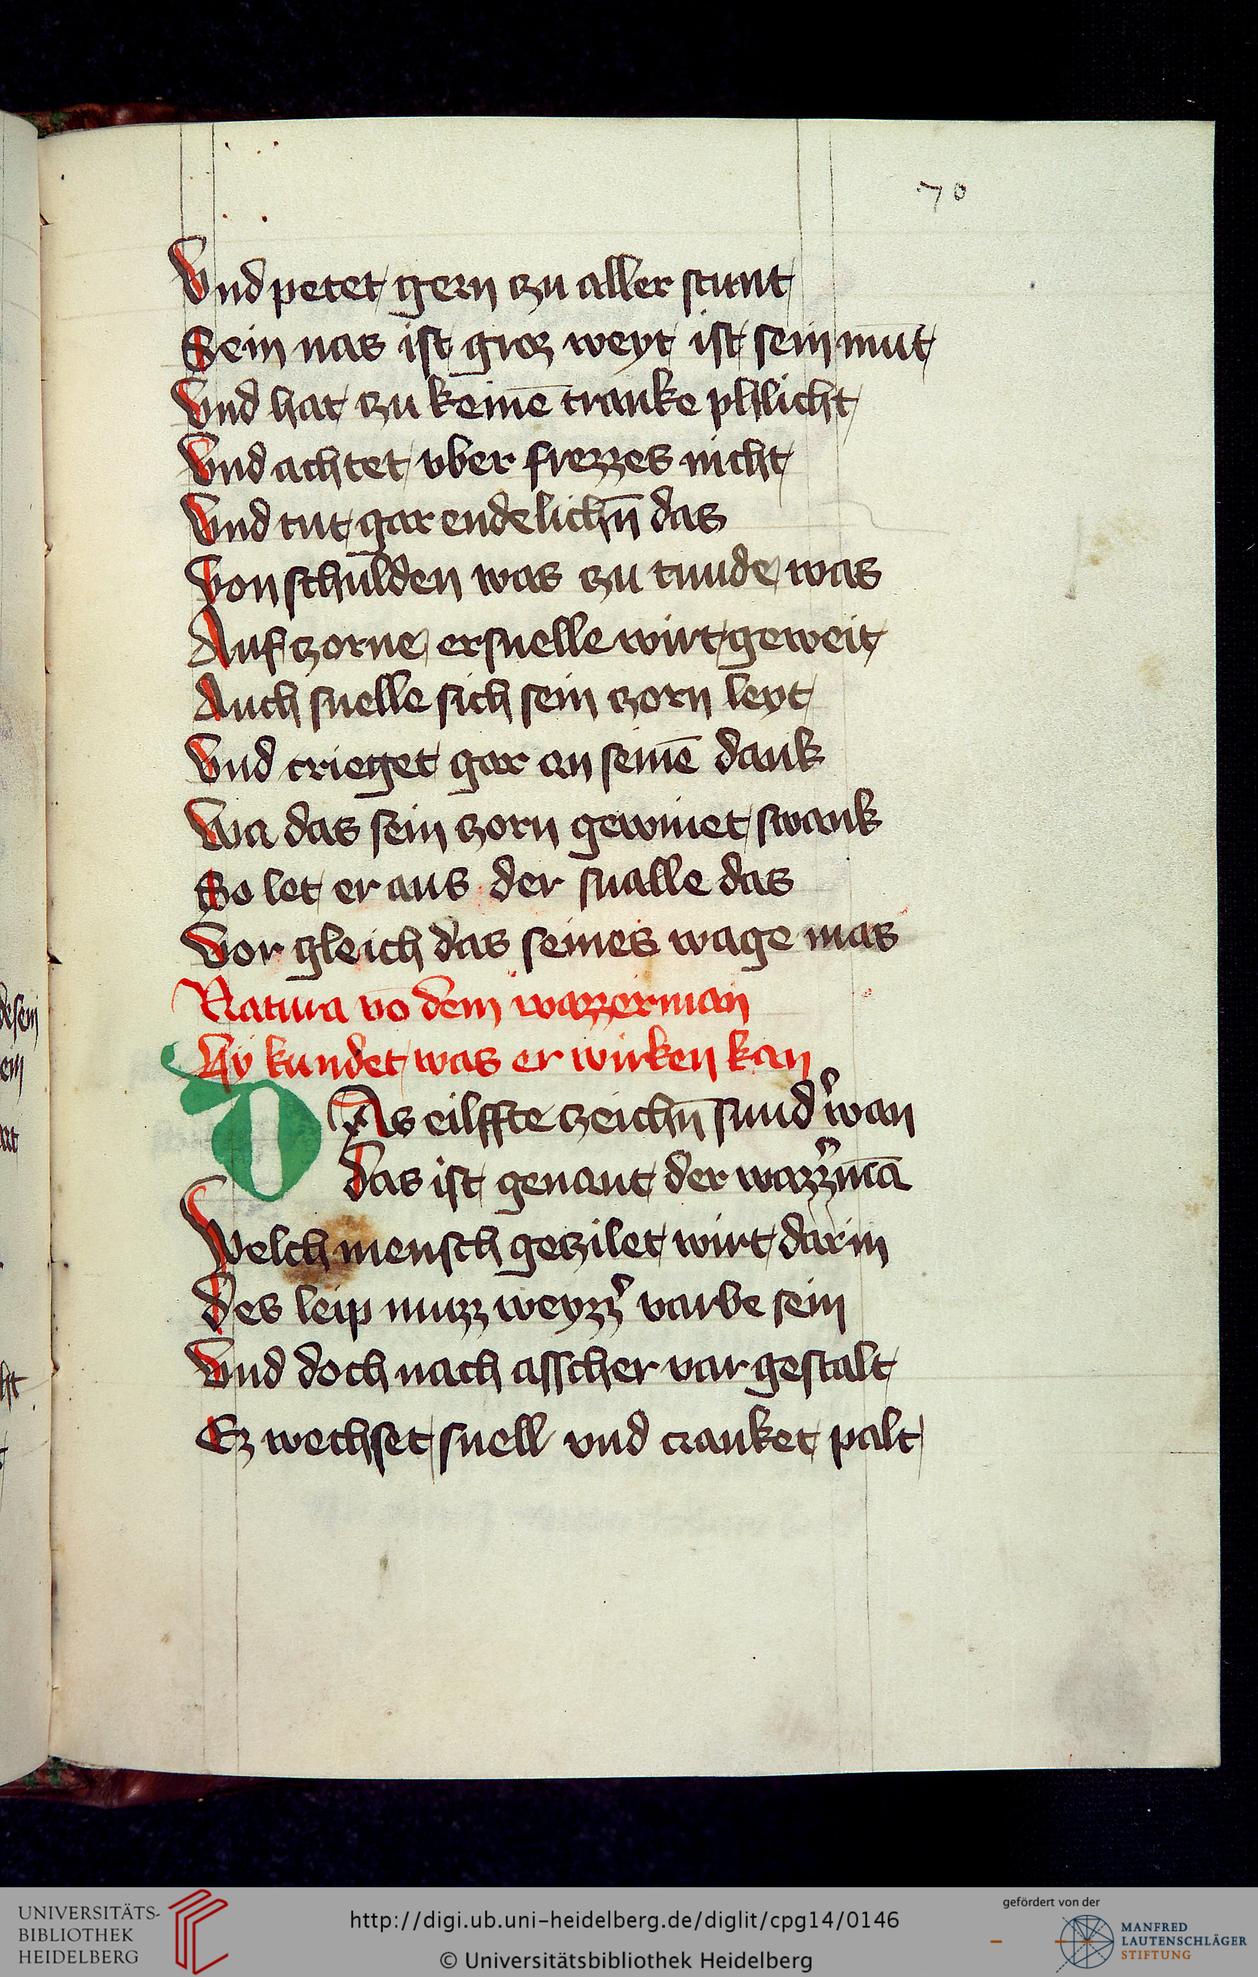 70
Vnd petet gern zu aller stunt
Sein nas ist groz weyt ist sein mūt
Vnd hat zu keinē tranke phlicht
Vnd achtet vber frezzes nicht
Vnd tut gar endelichn̄ das
Von schulden was zu tunde was
Auf zorne er snelle wirt geweit
Auch snelle sich sein zorn leyt
Vnd crieget gar an seinē dank
Wa das sein zorn gewinet swank
So let er aus der snalle das
Vor gleich das seines wage mas
Natura vō dem wazzerman
Hy kundet was er wirken kan
DAs eilffte zeichn̄ sund' wan
das ist genant der wazz'mā
Welch mensch gezilet wirt darin
Des leip muzz weyzz' varbe sein
Vnd doch nach asscher var gestalt
Ez wechset snell vnd cranket palt
UNIVERSITÄTS-
BIBLIOTHEK
HEIDELBERG
http://digi.ub.uni-heidelberg.de/diglit/cpg14/0146
© Universitätsbibliothek Heidelberg
gefördert von der
MANFRED
LAUTENSCHLÄGER
STIFTUNG